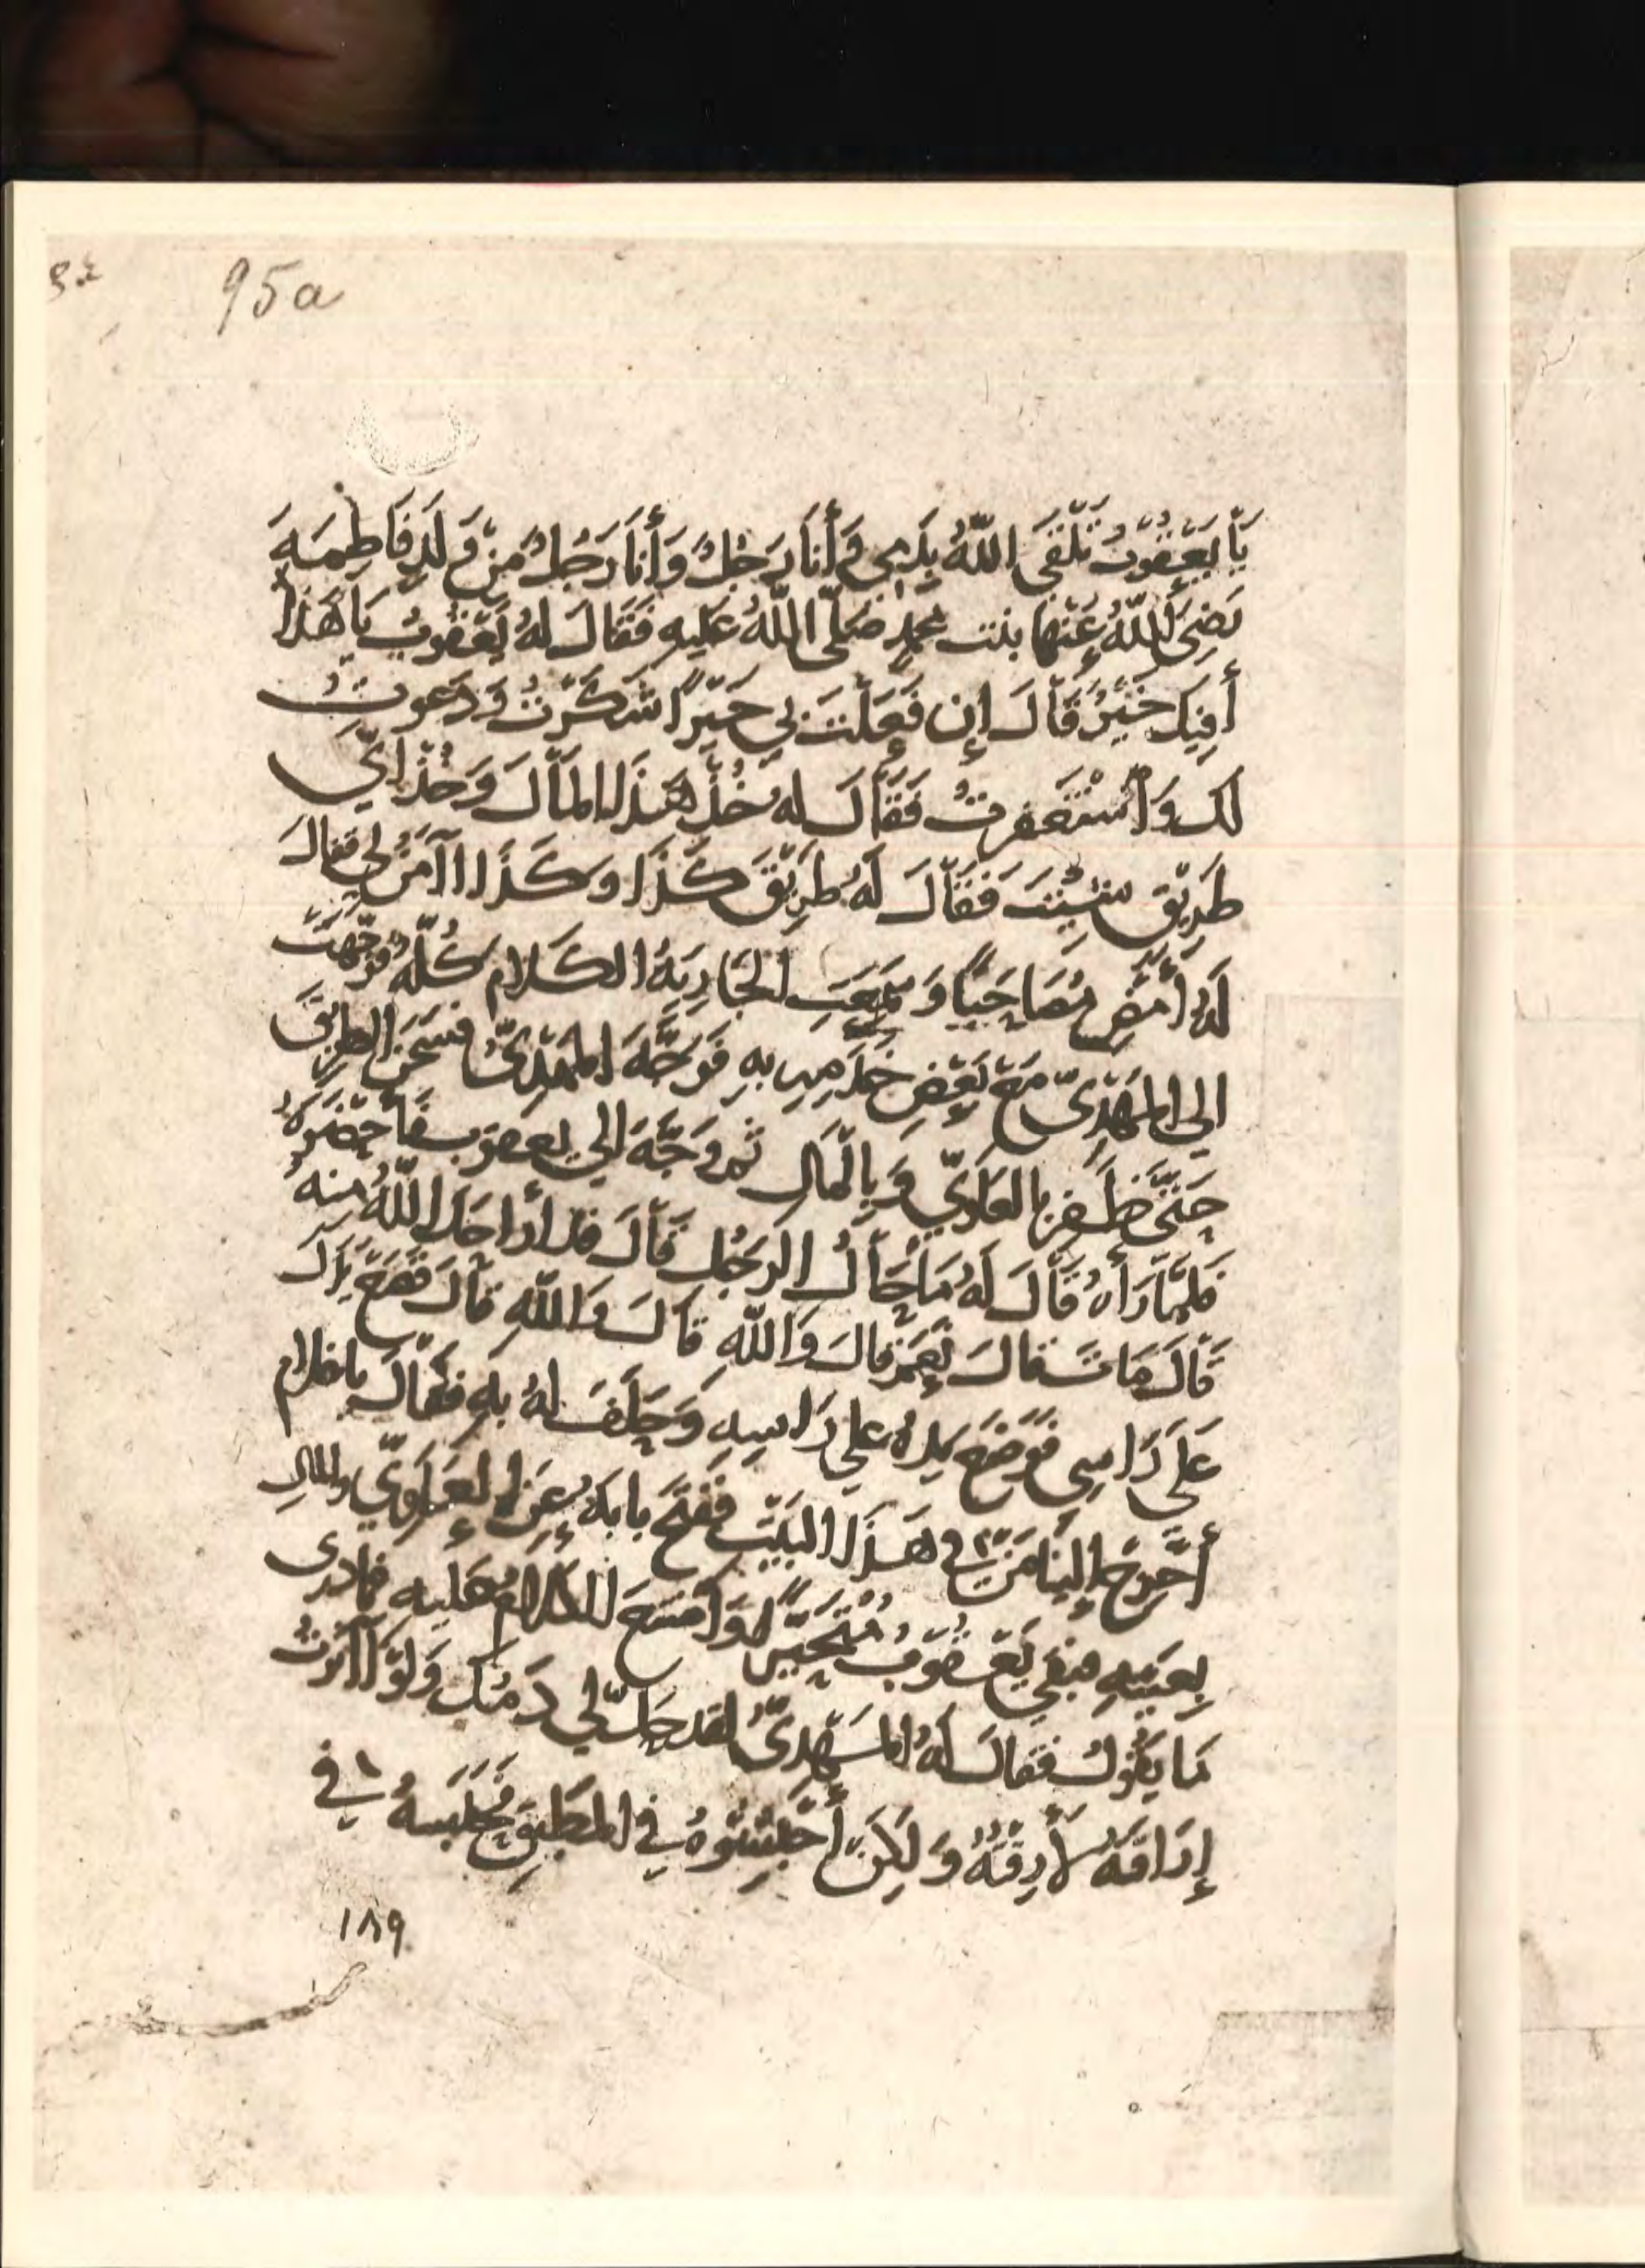 95a
يَا يَعْقُوبُ تَلْقَى اللّٰهُ بِدَمِي وَأَنَا رَجُلٌ وَأَنَا رَجُلٌ مِنْ وَلَدِ فَاطِمَةَ
رَضِيَ اللّٰهُ عَنْهَا بنت محمدٍ صَلَّى اللّٰهُ عَلَيهِ فَقَالَ لهُ يَعْقُوبُ يَا هَذَا
أَفِيكَ خَيْرٌ قَالَ إِن فَعَلْتَ بِي خَيْرًا شَكَرْتُ وَدَعوتُ
لك وَاسْتَغفرتُ فَقَالَ لهُ خُذْ هَذَا المَالَ وَخُذْ ايَّ
طَرِيْق شِئْتَ فَقَالَ لَهُ طَرِيْقَ كَذَا وكَذَا اآمَنُ لِي فقالَ
لَهُ أمْضِ مُصَاحَبًا وَسَمِعَتِ الْجَارِيَةُ الكَلام كُلَّهُ فَوَجَّهَتْ
الي المَهْدِيّ مَعَ بَعْضِ خَدَمِهِ بهِ فَوَجَّهَ المَهْدِيُّ فَشَحَنَ الطرِيْقَ
حَتَّى ظَفِرَ بالعَلَوِيّ وَبِالْمَالِ ثم وَجَّهَ الي يعقوب فَأَحْضَرَهُ
فلمَّا رَأهُ قَالَ لَهُ مَا حَالُ الرَجُلِ قَالَ قد أراحَكَ اللّٰهُ منه
قَالَ مَاتَ قالَ نَعَمْ قالَ وَاللّٰهِ قَالَ وَاللّٰهِ قالَ فَضَعْ يَدَكَ
عَلَى رَاسِي فوَضَعَ يدهُ علي رَاسِهِ وَحَلَفَ لهُ بِهِ فقَالَ يا غلام
أَخْرِجْ إلينَا مَنْ في هَذَا البَيْتِ ففَتَحَ بابَهُ عَنِ العَلَوِيّ والمالِ
بِعَيْنِهِ فبَقِيَ يَعْقُوبُ مُتَحَيِّرًا وَامْتَنَعَ الكَلامُ عَليهِ فمَا درى
مَا يَقُولُ فَقَالَ لهُ المَهْدِيُّ لقد حَلَّ لي دَمُكَ وَلوْ آثَرْتُ
إِرَاقَتَهُ لأَرَقْتُهُ وَلَكِن أحْبِسُوهُ في المُطْبِقِ فَحَبَسَهُ في
١٨٩